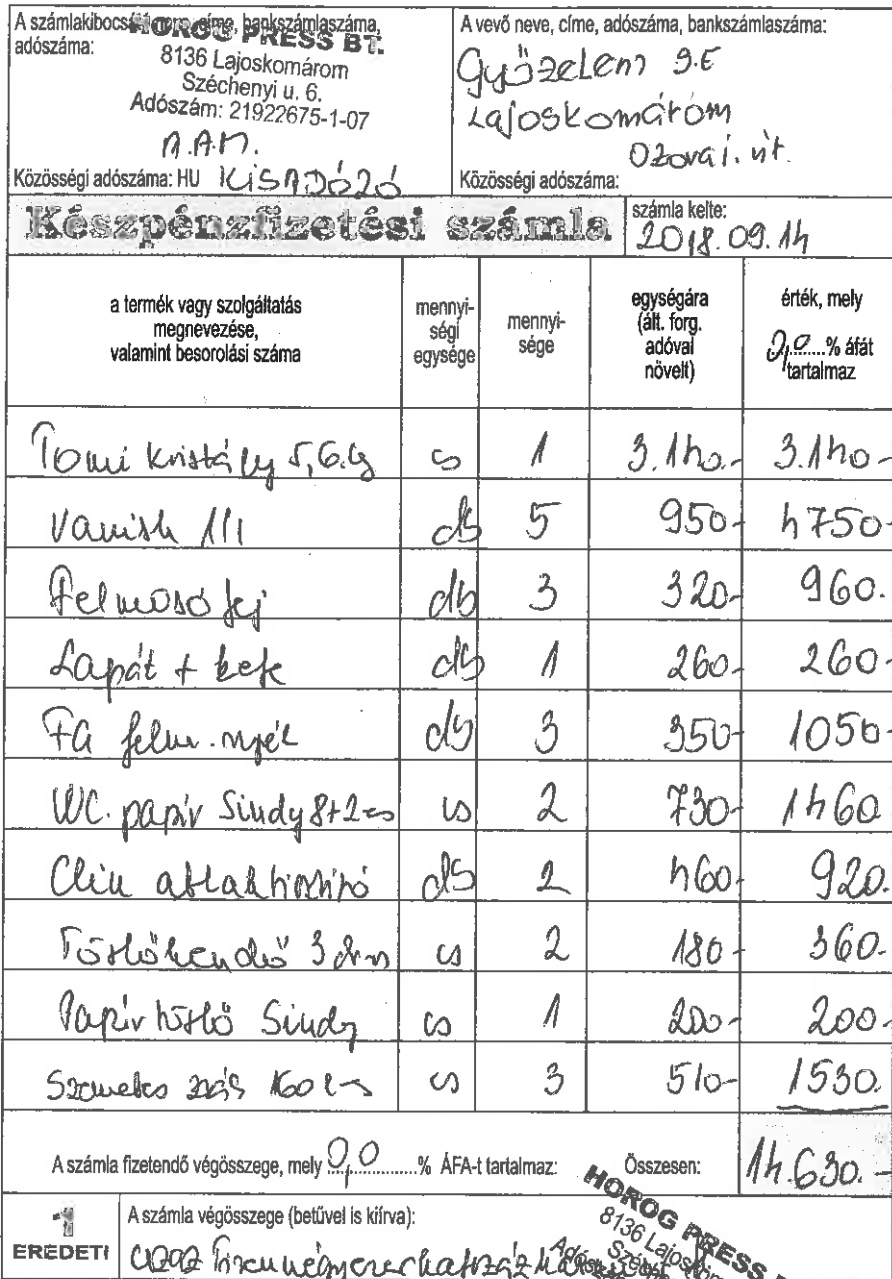 A számlakibocsátó neve, címe, bankszámlaszáma,
adószáma:
HOROG PRESS BT.
8136 Lajoskomárom
Széchenyi u. 6.
Adószám: 21922675-1-07
A.A.M.
Közösségi adószáma: HU KISADÓZÓ
A vevő neve, címe, adószáma, bankszámlaszáma:
Győzelem S.E
Lajoskomárom
Ozorai. út.
Közösségi adószáma:
Készpénzfizetési számla
számla kelte:
2018.09.14
a termék vagy szolgáltatás
megnevezése,
valamint besorolási száma
mennyi-
ségi
egysége
mennyi-
sége
egységára
(ált. forg.
adóval
növelt)
érték, mely
0,0 % áfát
tartalmaz
Tomi Kristály 5,6.g cs 1 3.140.- 3.140-
Vanish 1/1 db 5 950- 4750-
Felmosó fej db 3 320- 960.
Lapát + kefe db 1 260- 260-
Fa felm. nyél db 3 350- 1050-
WC. papír Sindy 8+2-es cs 2 730- 1460
Clin ablaktisztító db 2 460- 920.
Törlőkendő 3 db-os cs 2 180- 360.
Papír törlő Sindy cs 1 200- 200-
Szemetes zsák 160 l-s cs 3 510- 1530.
A számla fizetendő végösszege, mely 0,0 % ÁFA-t tartalmaz: Összesen: 14.630.-
1
EREDETI
A számla végösszege (betűvel is kiírva):
azaz Tizennégyezerhatszázharminc
HOROG PRESS
8136 Lajoskom